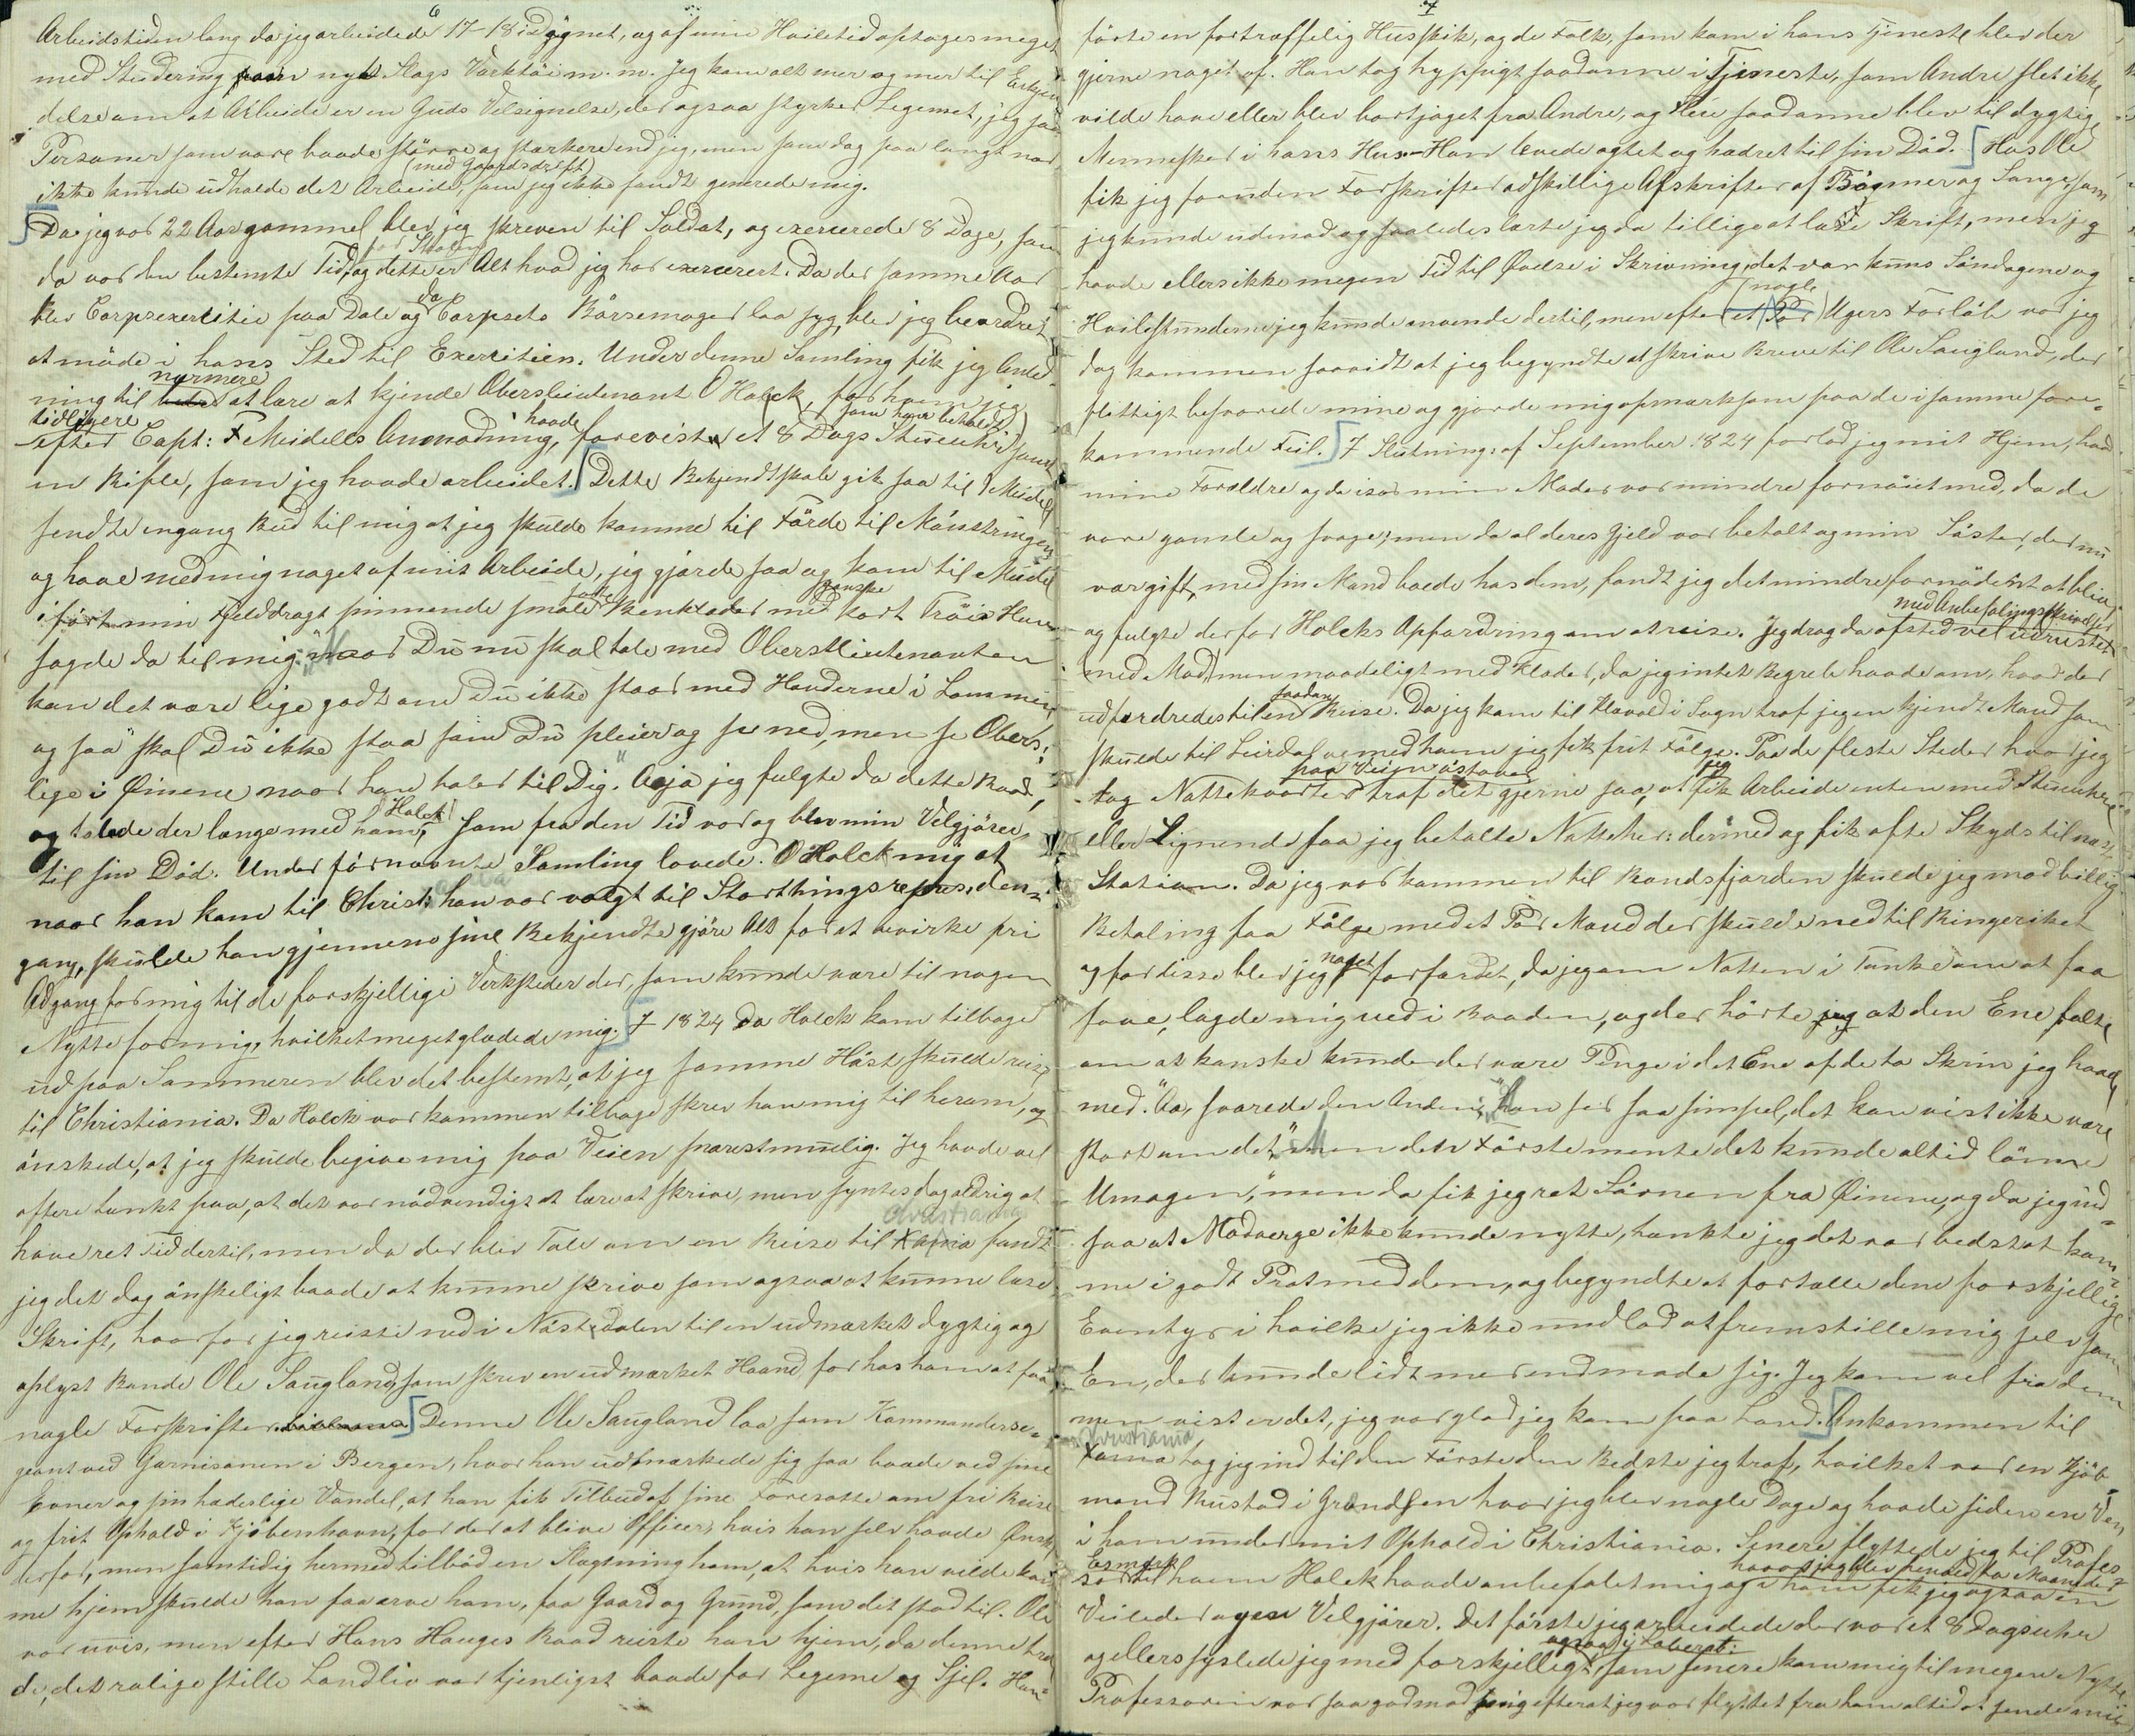 6
Arbeidstiden lang da jeg arbeidede 17-18 i Døgnet, og af min Hviletid optoges meget
med Studering paa nyt Slags Værktøi m. m. Jeg kom alt mer og mer til Erkjen
delse om at Arbeide er en Guds Velsignelse, der ogsaa styrker Legemet, jeg saa
Personer som vare baade større og stærkere end jeg, men som dog paa langt nær
(med Gaardsdrift)
ikke kunde udholde det Arbeide, som jeg ikke fandt generede mig.
Da jeg var 22 Aar gammel blev jeg skreven til Soldat, og exercerede 8 Dage, som
for Skolen
da var den bestemte Tid, og dette er Alt hvad jeg har exerceret. Da der samme Aar
blev Corpsexercitie paa Dale og da Corpsets Børsemager laa syg, blev jeg beordret
at møde i hans Sted til Exercitien. Under denne Samling fik jeg Anled-
nærmere
ning til at lære at kjende Oberstlieutenant O Holck, for hvem jeg
tidligere havde som han beholdt
efter Capt: F Meidells Anmodning, forevist et 8 Dags Stueuhr samt
en Rifle, som jeg havde arbeidet. Dette Bekjendtskab gik saa til Meidell
sendte engang Bud til mig at jeg skulde komme til Førde til Mønstringen
og have med mig noget af mit Arbeide, jeg gjørde saa og kom til Meidel
ganske
iført min Fjelddragt sinnende smale Benklæder med kort Trøie Han
sagde da til mig: "Naar Du nu skal tale med Oberstlieutenanten
kan det være lige godt om Du ikke staar med Hænderne i Lommen
og saa skal Du ikke staa som Du pleier og se ned, men se Oberst:
lige i Øinene naar han taler til Dig." Aaja jeg fulgte da dette Raad,
Holck
og talede der længe med ham, som fra den Tid var og blev min Velgjører
til sin Død. Under førnævnte Samling lovede O Holck mig at
naar han kom til Christ: han var valgt til Storthingsrepræs: den-
gang, skulde han gjennem sine Bekjendte gjøre Alt for at bevirke fri
Adgang for mig til de forskjellige Verksteder der, som kunde være til nogen
Nytte for mig, hvilket meget glædede mig. I 1824 da Holck kom tilbage
ud paa Sommeren blev det bestemt, at jeg samme Høst skulde reise
til Christiania. Da Holck var kommen tilbage skrev han mig til herom, og
ønskede, at jeg skulde begive mig paa Veien snarest muelig. Jeg havde vel
oftere tænkt paa, at det var nødvendigt at lære at skrive, men syntes dog aldrig at
Christiania
have ret Tid dertil, men da der blev Tale om en Reise til Xania fandt
jeg det dog ønskeligt baade at kunne skrive som ogsaa at kunne læse
Skrift, hvorfor jeg reiste ned i Nøstdalen til en udmærket dygtig og
oplyst Bonde Ole Sougland, som skrev en udmærket Haand for hos ham at faa
nogle Forskrifter. Denne Ole Sougland laa som Kommanderse-
geant ved Garnisonen i Bergen, hvor han udmærkede sig saa baade ved sine
Evner og sin hæderlige Vandel, at han fik Tilbud af sine Foresatte om fri Reise
og frit Ophold i Kjøbenhavn, for der at blive Officer, hvis han selv havde Ønske
derfor, men samtidig hermed tilbød en Slægtning ham, at hvis han vilde kom
me hjem skulde han faa arve ham, faa Gaard og Grund, som det stod til. Ole
var uvis, men efter Hans Hauges Raad reiste han hjem, da denne tro
de, det rolige stille Landliv var tjenligst baade for Legeme og Sjel. Han
7
førte en fortræffelig Husskik, og de Folk, som kom i hans Tjeneste blev der
gjerne noget af. Han tog hyppigt saadanne i Tjeneste, som Andre slet ikke
vilde have eller blev bortjaget fra Andre, og flere saadanne blev til dygtige
Mennesker i hans Hus - Han levede agtet og hædret til sin Død. Hos Ole
fik jeg foruden Forskrifter adskillige Afskrifter af Bønner og Sange, som
jeg kunde udenad og saaledes lærte jeg da tillige at læse Skrift, men jeg
havde ellers ikke megen Tid til Øvelse i Skrivning, det var kuns Søndagene og
nogle
Hvilestunderne jeg kunde anvende dertil, men efter et Par Ugers Forløb var jeg
dog kommen saavidt at jeg begyndte at skrive Breve til Ole Sougland, der
flittigt besvarede mine og gjorde mig opmærksom paa de i samme fore-
kommende Feil. I Slutning: af September 1824 forlod jeg mit Hjem, hvad
mine Forældre og da især min Moder var mindre fornøiet med, da de
vare gamle og svage; men da al deres Gjeld var betalt og min Søster, der nu
var gift, med sin Mand boede hos dem, fandt jeg det mindre fornødent at blive
med Anbefalingsskrivelser
og fulgte derfor Holcks Opfordring om at reise. Jeg drog da afsted vel udrustet
med Mad men maadeligt med Klæder, da jeg intet Begreb havde om, hvad der
saadan
udfordredes til en Reise. Da jeg kom til Vavold i Sogn traf jeg en kjendt Mand som
skulde til Leirdal, med hvem jeg fik frit Følge. Paa de fleste Steder hvor jeg
paa Veien østover jeg
tog Nattekvarter traf det gjerne saa, at fik Arbeide enten med Stueuhre
eller Lignende saa jeg betalte Natteher: dermed og fik ofte Skyds til næste
Station. Da jeg var kommen til Randsfjorden skulde jeg mod billig
Betaling faa Følge med et Par Mænd der skulde ned til Ringeriket
noget
og for disse blev jeg forfærdet, da jeg om Natten i Tanke om at faa
sove, lagde mig ned i Baaden, og der hørte jeg at den Ene talte
om at kanske kunde der være Penge i det Ene af de to Skrin jeg havde
med. "Aa, svarede den Anden, "han ser saa simpel, det kan vist ikke være
stort om det," Men den Første mente det kunde altid lønne
Umagen," men da fik jeg ret Søvnen fra Øinene, og da jeg ind-
saa at Modværge ikke kunde nytte, tænkte jeg det var bedst at kom-
me i godt Prat med dem, og begyndte at fortælle dem forskjellige
Eventyr i hvilke jeg ikke undlod at fremstille mig selv som
En, der kunde lidt mer end made sig. Jeg kom vel fra dem
men vist er det, jeg var glad jeg kom paa Land. Ankommen til
Christiania
Xania tog jeg ind til den Første den Bedste jeg traf, hvilket var en Kjøb-
mand Rustad i Grændsen hvor jeg blev nogle Dage og havde siden en Ven
i ham under mit Ophold i Christiania. Senere flyttede jeg til Profes-
Esmark hvor jeg blev henved to Maaneder
sor til hvem Holck havde anbefalet mig og i ham fik jeg ogsaa en
Veileder og en Velgjører. Det første jeg arbeidede der var et 8 Dagsuhr
ogsaa i Laborat:
og ellers syslede jeg med forskjelligt, som senere kom mig til megen Nytte
Professoren var saa god mod mig efterat jeg var flyttet fra ham altid at sende mig